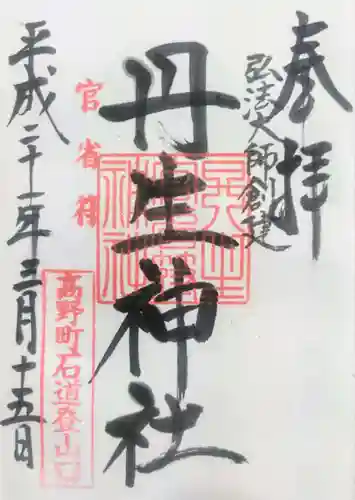 奉拝
弘法大師創建
丹生神社
官省符
平成二十一年三月十五日
高野町石道登山口